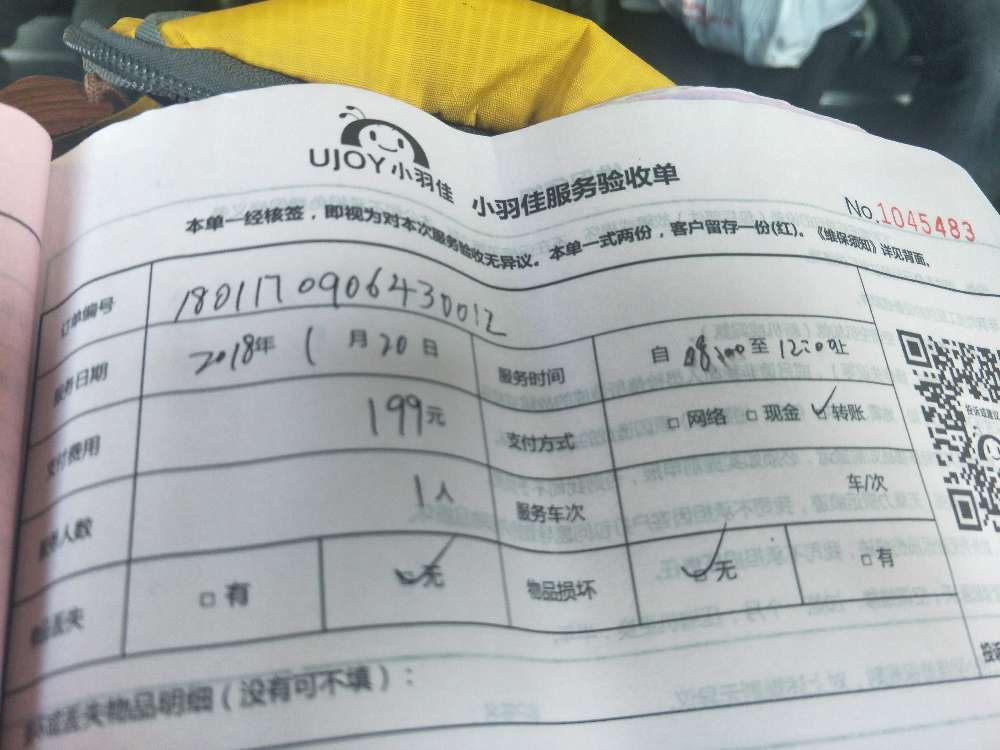 UJOY小羽佳 小羽佳服务验收单
No.1045483
本单一经核签，即视为对本次服务验收无异议。本单一式两份，客户留存一份(红)。《维保须知》详见背面。
订单编号 1801170906430012
服务日期 2018年 1 月 20 日 服务时间 自 08:00 至 12:00止
支付费用 199元 支付方式 □ 网络 □ 现金 ☑ 转账
人数 1 人 服务车次 车/次
丢失 □ 有 ☑ 无 物品损坏 ☑ 无 □ 有
丢失物品明细（没有可不填）：
投诉或建议
投诉